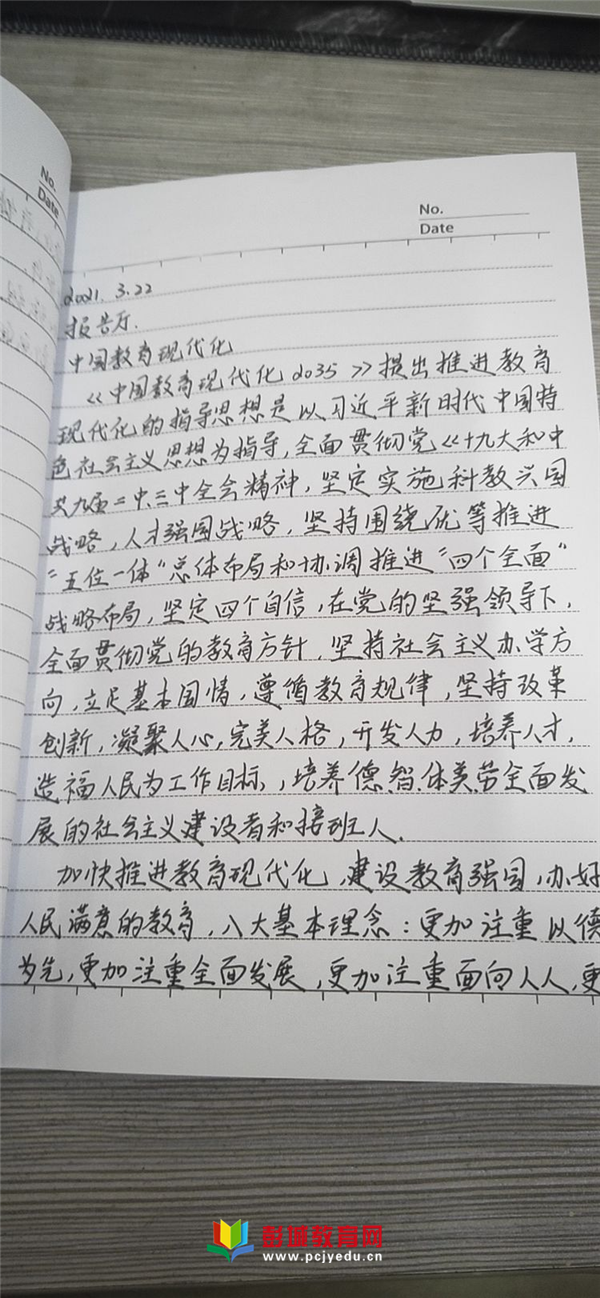 No.
Date
No.
Date
2021. 3.22
报告厅.
中国教育现代化
《中国教育现代化2035》提出推进教育
现代化的指导思想是以习近平新时代中国特
色社会主义思想为指导,全面贯彻党《十九大和中
共九届二中三中全会精神,坚定实施科教兴国
战略,人才强国战略,坚持围绕优等推进
"五位一体"总体布局和协调推进"四个全面"
战略布局,坚定四个自信,在党的坚强领导下,
全面贯彻党的教育方针,坚持社会主义办学方
向,立足基本国情,遵循教育规律,坚持改革
创新,凝聚人心,完美人格,开发人力,培养人才,
造福人民为工作目标,培养德.智.体美劳全面发
展的社会主义建设者和接班人.
加快推进教育现代化,建设教育强国,办好
人民满意的教育,八大基本理念:更加注重以德
为先,更加注重全面发展,更加注重面向人人,更
彭城教育网
www.pcjyedu.cn